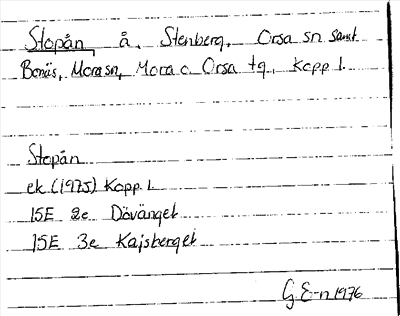 Stopån, å, Stenberg, Orsa sn samt
Bonäs, Mora sn, Mora o. Orsa tg, Kopp l.
Stopån
ek. (1975) Kopp. l.
15E 2e Dövänget
15E 3e Kajsberget
G. E-n 1976